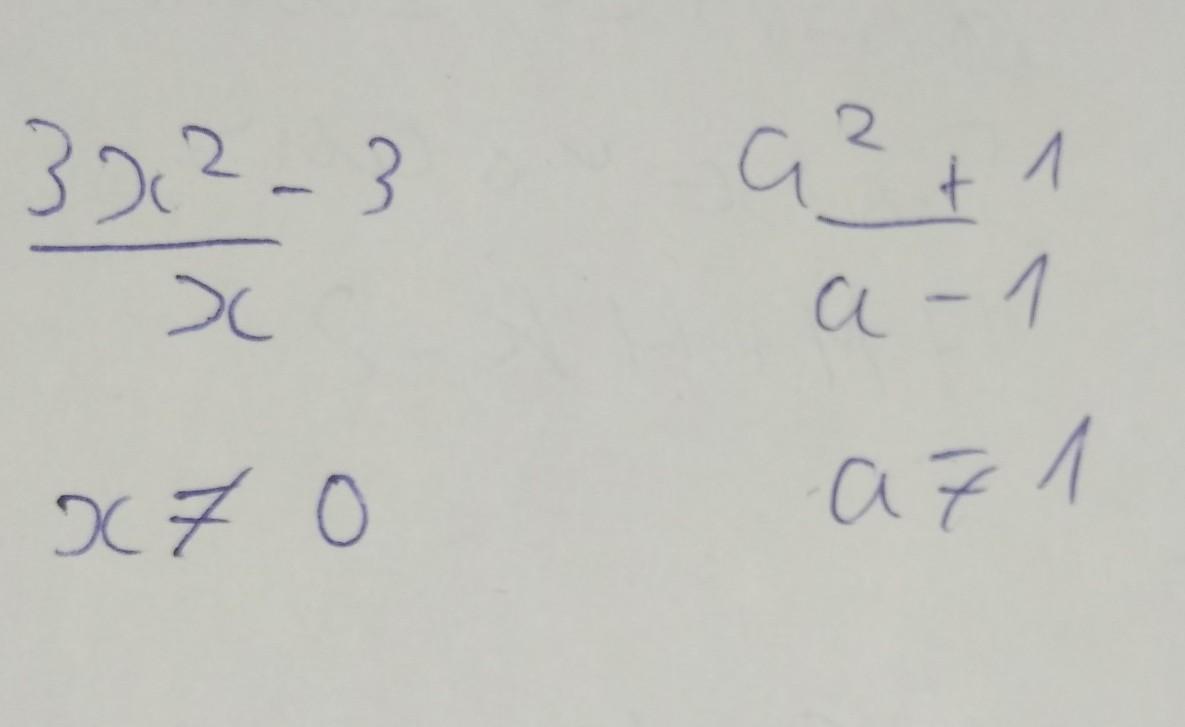 3x² - 3 a² + 1
x a - 1
x ≠ 0 a ≠ 1